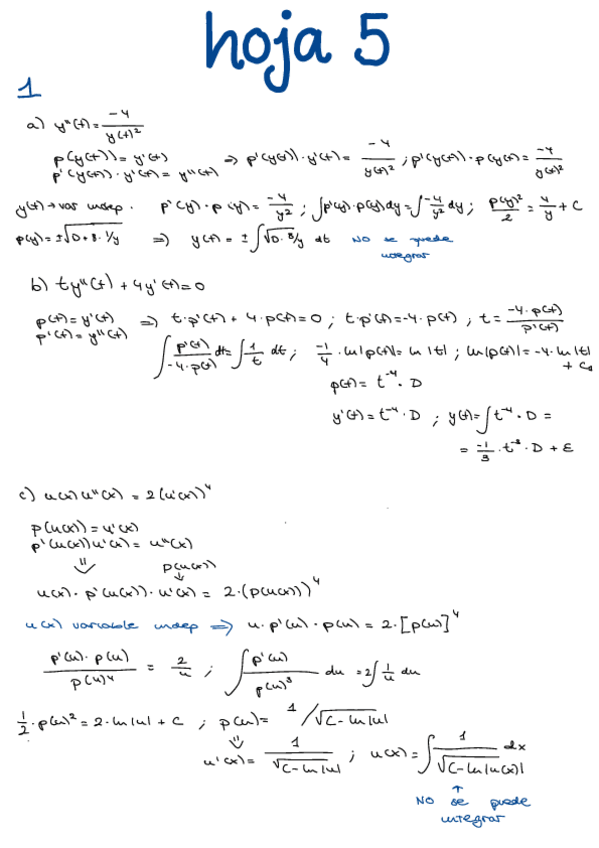 hoja 5
1
a) y''(t) = -4/y(t)²
p(y(t)) = y'(t)
p'(y(t)) · y'(t) = y''(t) ⇒ p'(y(t)) · y'(t) = -4/y(t)² ; p'(y(t)) · p(y(t)) = -4/y(t)²
y(t) → var indep. p'(y) · p(y) = -4/y² ; ∫p'(y) · p(y) dy = ∫-4/y² dy ; p(y)²/2 = 4/y + C
p(y) = ±√(D + 8 · 1/y) ⇒ y(t) = ±∫√(D · 8/y) dt NO se puede
integrar
b) t y''(t) + 4y'(t) = 0
p(t) = y'(t)
p'(t) = y''(t) ⇒ t · p'(t) + 4 · p(t) = 0 ; t · p'(t) = -4 · p(t) ; t = -4 · p(t)/p'(t)
∫ p'(t)/(-4 · p(t)) dt = ∫ 1/t dt ; -1/4 · ln|p(t)| = ln|t| ; ln|p(t)| = -4 · ln|t|
+ C
p(t) = t⁻⁴ · D
y'(t) = t⁻⁴ · D ; y(t) = ∫ t⁻⁴ · D =
= -1/3 · t⁻³ · D + E
c) u(x) u''(x) = 2(u'(x))⁴
p(u(x)) = u'(x)
p'(u(x)) u'(x) = u''(x)
⇓ p(u(x))
↓
u(x) · p'(u(x)) · u'(x) = 2 · (p(u(x)))⁴
u(x) variable indep ⇒ u · p'(u) · p(u) = 2 · [p(u)]⁴
p'(u) · p(u)/p(u)⁴ = 2/u ; ∫ p'(u)/p(u)³ du = 2∫ 1/u du
1/2 · p(u)² = 2 · ln|u| + C ; p(u) = 1/√(C - ln|u|)
⇓
u'(x) = 1/√(C - ln|u|) ; u(x) = ∫ 1/√(C - ln|u(x)|) dx
↑
NO se puede
integrar